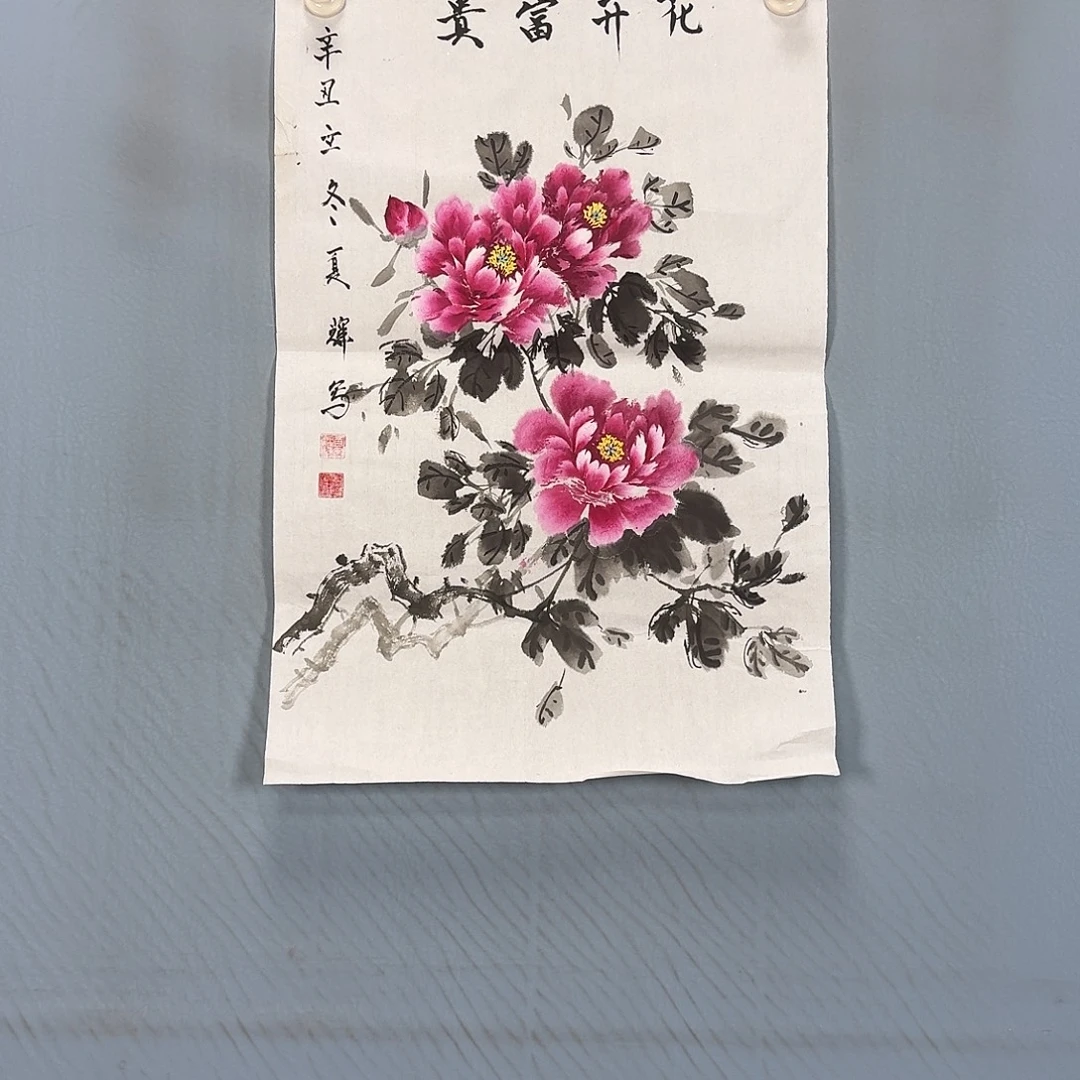 花开富贵
辛丑立冬夏辉写